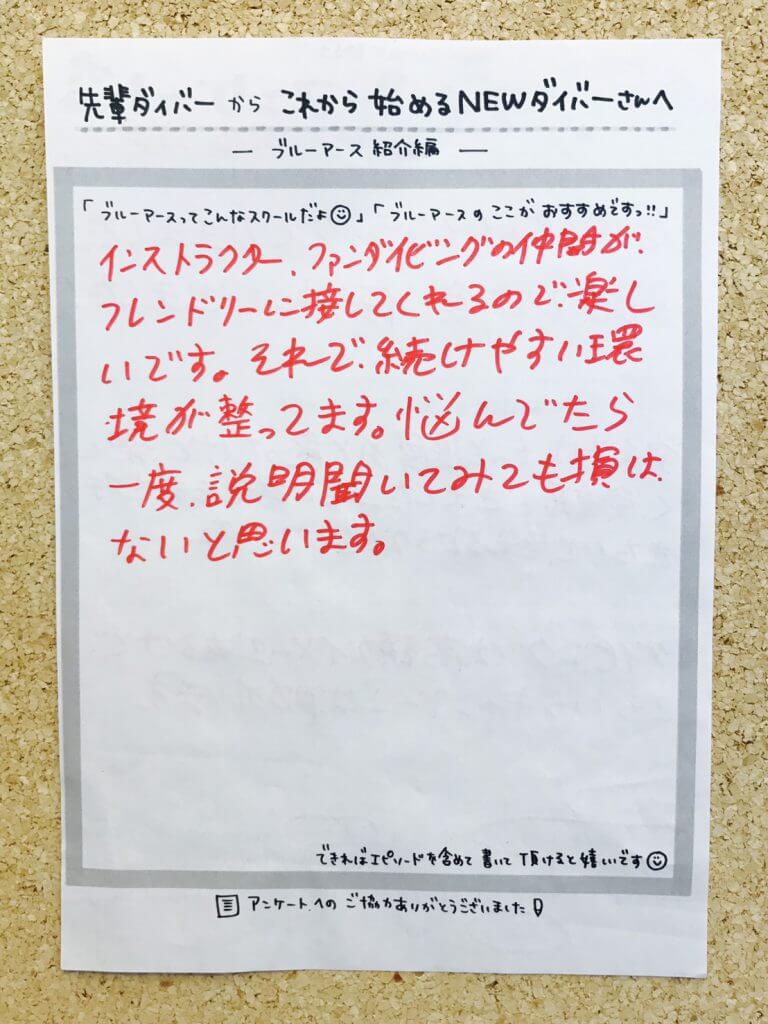 先輩ダイバーから これから 始めるNEWダイバーさんへ
― ブルーアース 紹介編 ―
「ブルーアースってこんなスクールだよ☺」「ブルーアースの ここが おすすめですっ!!」
インストラクター、ファンダイビングの仲間が、
フレンドリーに接してくれるので、楽し
いです。それで、続けやすい環
境が整ってます。悩んでたら
一度、説明聞いてみても損は、
ないと思います。
できればエピソードを含めて 書いて頂けると嬉しいです☺
アンケートへの ご協力ありがとうございました